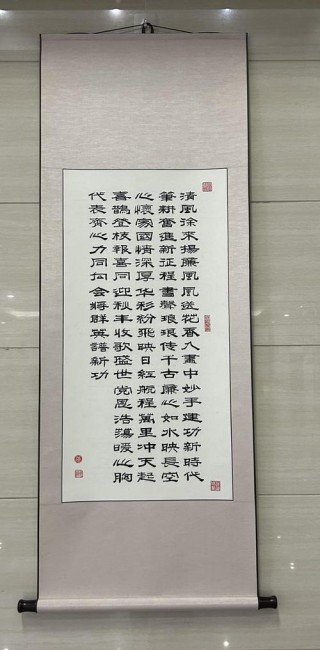 清風徐來揚廉風風送花香入畫中妙手建功新時代
筆耕奮進新征程書聲琅琅传千古廉心如水映長空
心懷家國情深厚华彩紛飛映日紅航程萬里冲天起
喜鵲登枝報喜同迎秋丰收歌盛世党恩浩蕩暖心胸
代表齊心力同向会將群英譜新功